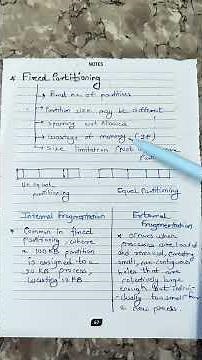 NOTES
* Fixed Partitioning
- Fixed no. of partitions
- Partition size may be different
- Spanning not Allowed
- Wastage of memory (IF)
- Size limitation (Not
Unequal
partitioning
Equal Partitioning
Internal Fragmentation
External
Fragmentation
* Common in fixed
partitioning where
a 100 KB partition
is assigned to a
90 KB process,
wasting 10 KB
* occurs when
processes are loaded
and removed, creating
small, non-contiguous
holes that are
collectively large
enough but indivi-
dually too small for
a new process
67